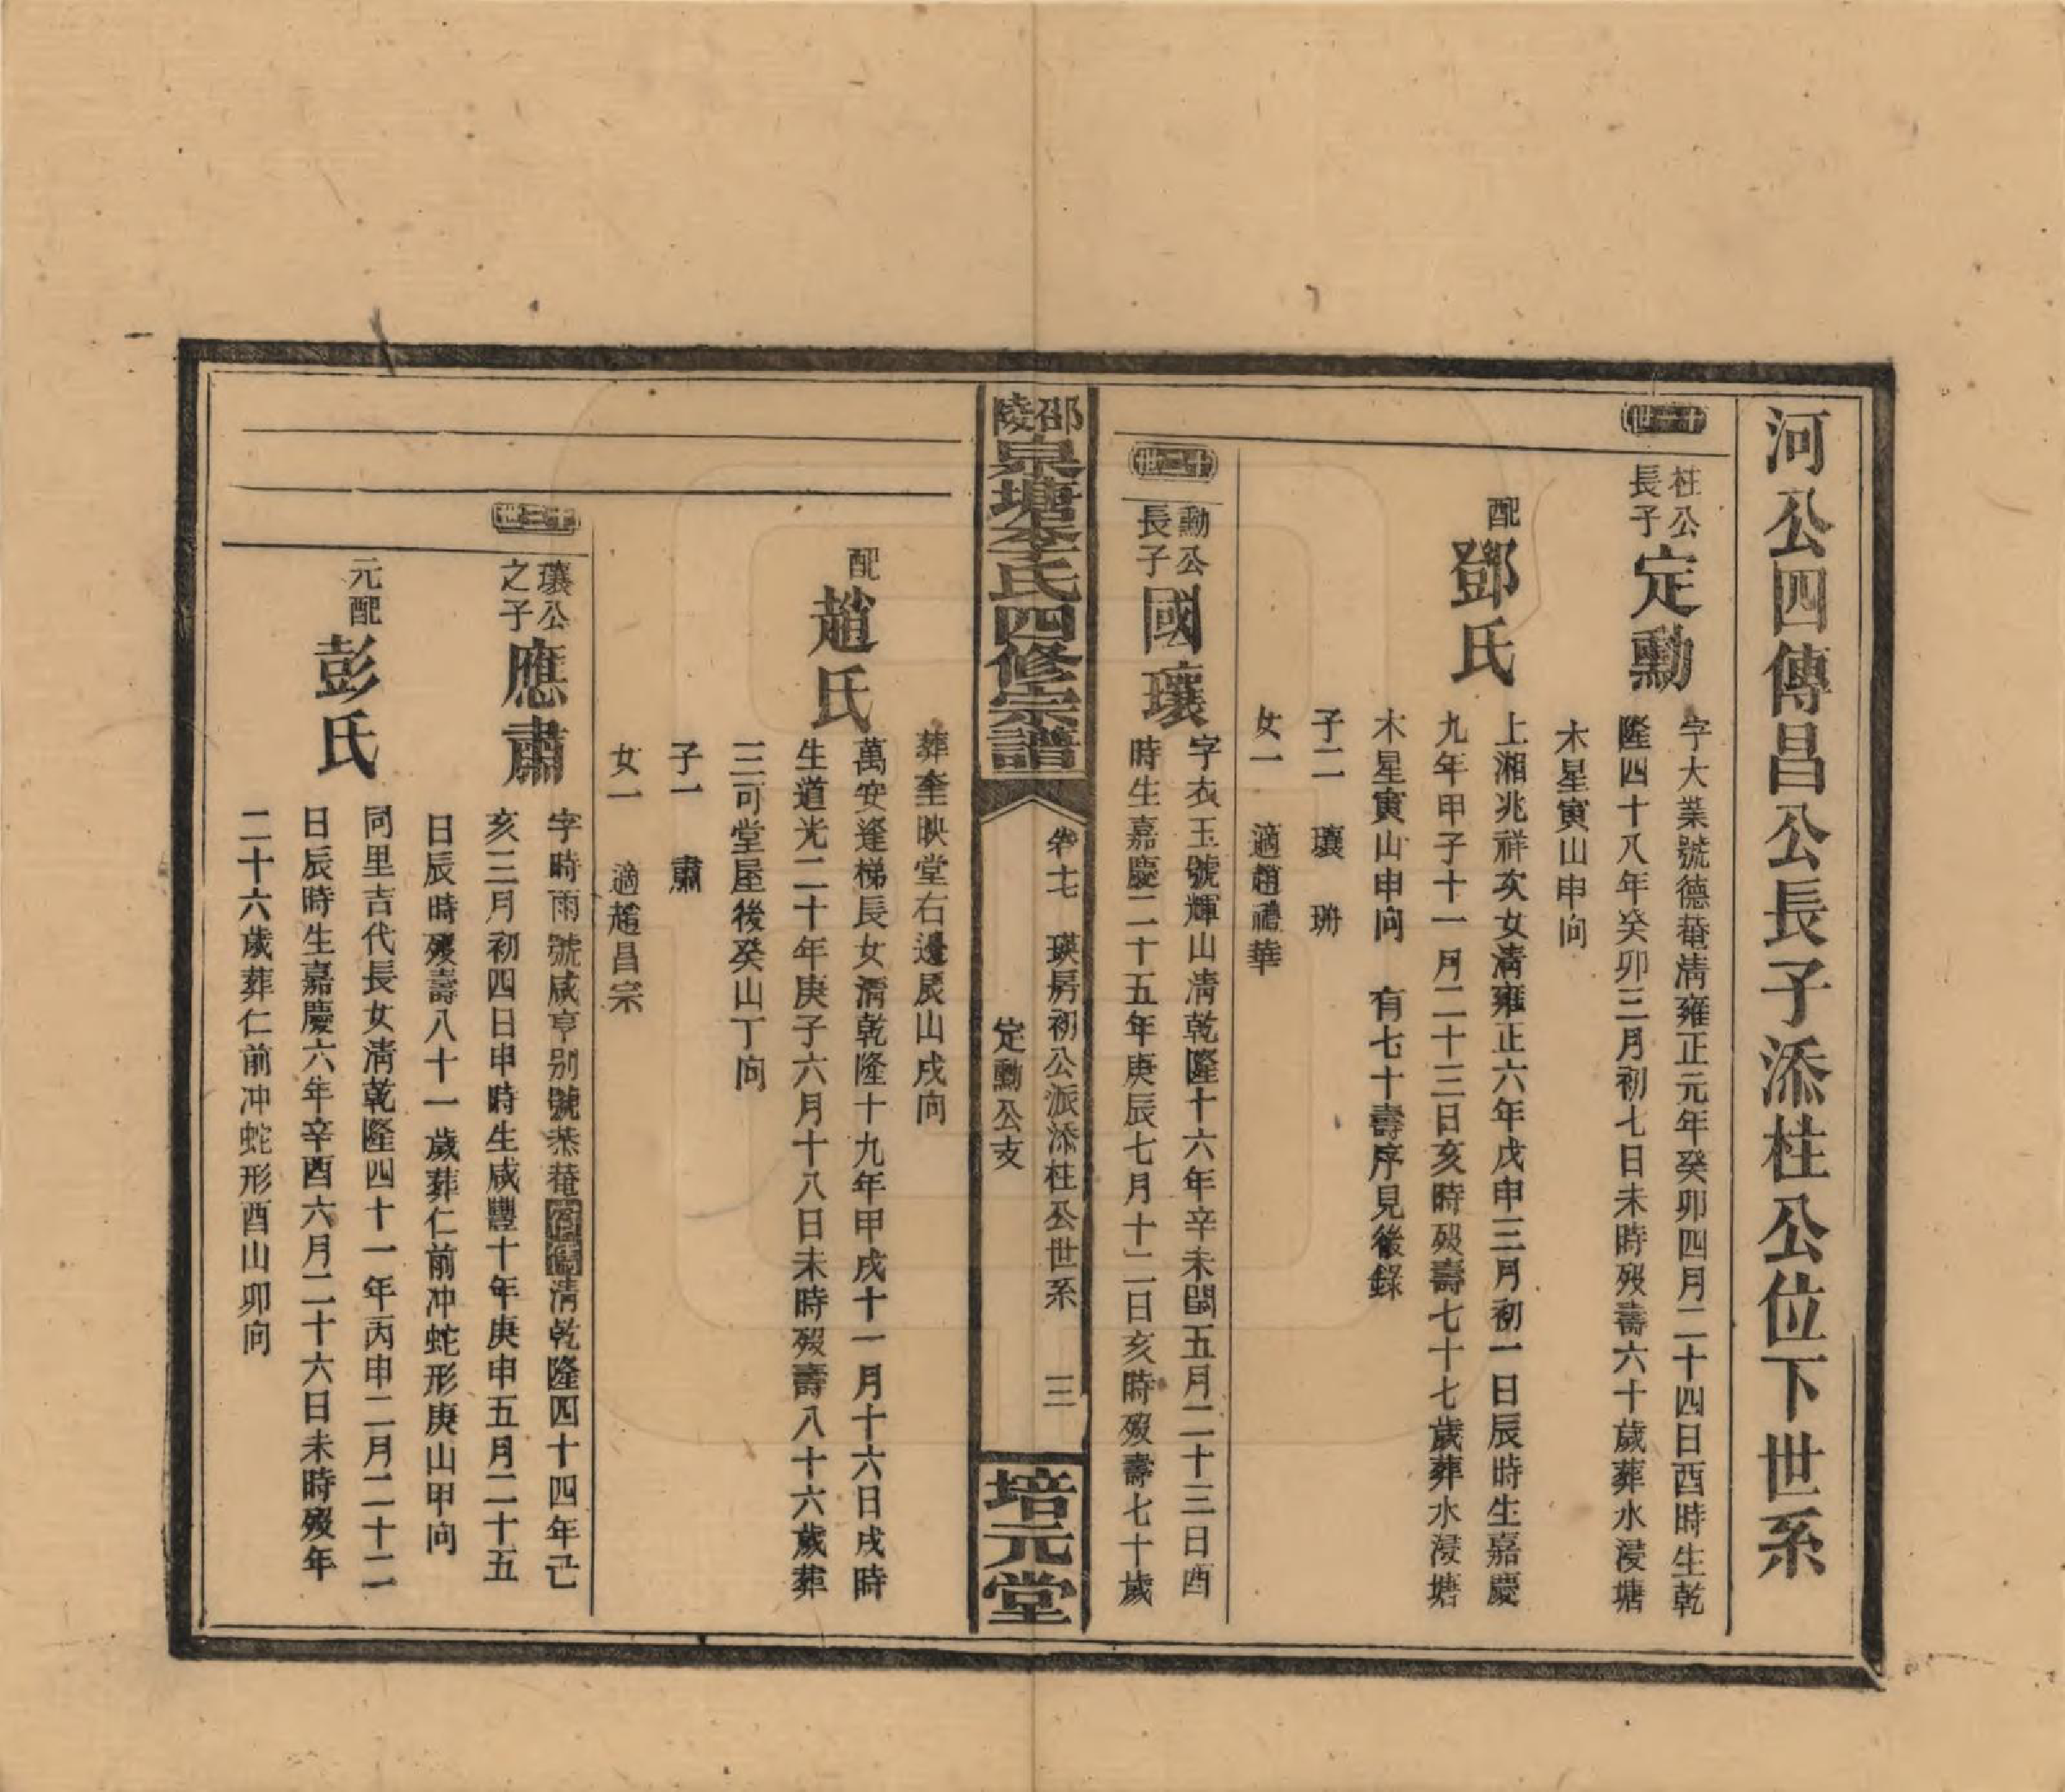 河公四傳昌公長子添柱公位下世系
柱公長子
定勳
字大業號德菴清雍正元年癸卯四月二十四日酉時生乾
隆四十八年癸卯三月初七日未時歿壽六十歲葬水浸塘
木星寅山申向
配
鄧氏
上湘兆祥次女清雍正六年戊申三月初一日辰時生嘉慶
九年甲子十一月二十三日亥時歿壽七十七歲葬水浸塘
木星寅山申向 有七十壽序見後錄
子二 瓖 珘
女一 適趙禮華
十二世
勳公長子
國瓖
字衣玉號輝山清乾隆十六年辛未閏五月二十三日酉
時生嘉慶二十五年庚辰七月十二日亥時歿壽七十歲
邵陵泉塘李氏四修宗譜
卷十七 瑛房初公派添柱公世系 三
定勳公支
培元堂
葬奎映堂右邊辰山戌向
配
趙氏
萬安逢梯長女清乾隆十九年甲戌十一月十六日戌時
生道光二十年庚子六月十八日未時歿壽八十六歲葬
三可堂屋後癸山丁向
子一 肅
女一 適趙昌宗
十三世
瓖公之子
應肅
字時雨號咸亨別號恭菴清乾隆四十四年己
亥三月初四日申時生咸豐十年庚申五月二十五
日辰時歿壽八十一歲葬仁前冲蛇形庚山甲向
元配
彭氏
同里吉代長女清乾隆四十一年丙申二月二十二
日辰時生嘉慶六年辛酉六月二十六日未時歿年
二十六歲葬仁前冲蛇形酉山卯向